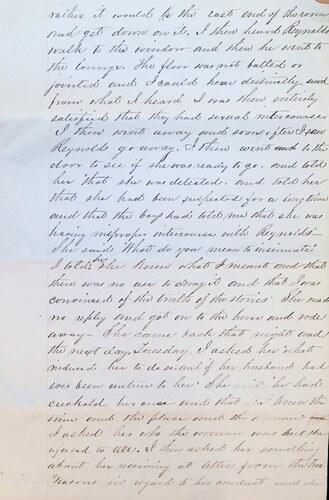 rather it would to the east end of the room
and get down on it. I then heard Reynolds
walk to the window and then he went to
the lounge. The floor was not batted or
jointed and I could hear distinctly and
from what I heard I was then entirely
satisfied that they had sexual intercourse
I then went away and soon after I saw
Reynolds go away. I then went and to the
door to see if she was ready to go. and told
her that she was detected. and told her
that she had been suspected for a long time
and that the boys had told me that she was
having improper intercourse with Reynolds—
She said What do you mean to insinuate
I told her she knew what I meant and that
there was no use to deny it and that I was
convinced of the truth of the stories She made
no reply and got on to the horse and rode
away— She came back that night and
the next day Tuesday. I asked her what
induced her to do so. and if her husband had
ever been untrue to her. She said he had
cuckold her once and that she knew the
time and the place and the woman
I asked her who the woman was but she
refused to tell. I then asked her something
about her receiving a letter from the Free
Masons in regard to her conduct, and she